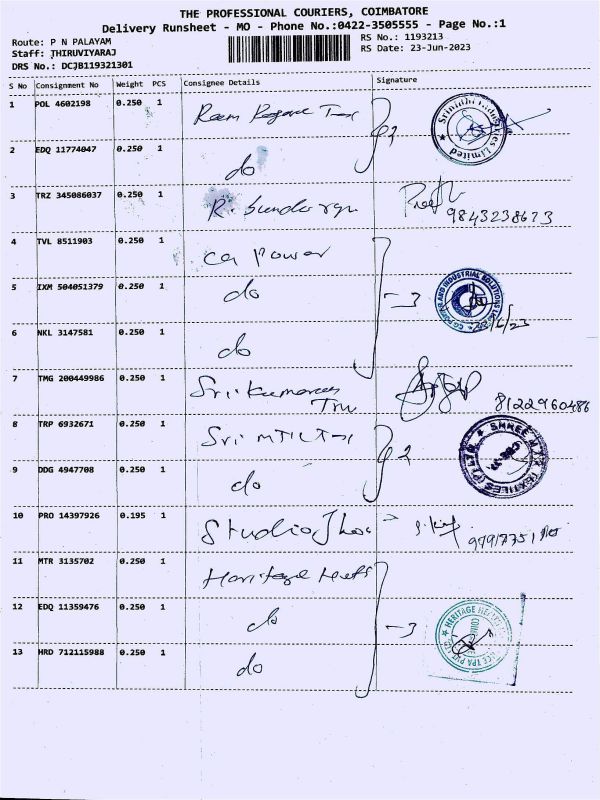 THE PROFESSIONAL COURIERS, COIMBATORE
Delivery Runsheet - MO - Phone No.:0422-3505555 - Page No.:1
Route: P N PALAYAM
Staff: THIRUVIYARAJ
DRS No.: DCJB119321301
RS No.: 1193213
RS Date: 23-Jun-2023
S No Consignment No Weight PCS Consignee Details Signature
1 POL 4602198 0.250 1
Srinidhi Industries Limited
2 EDQ 11774047 0.250 1 do
3 TRZ 345086037 0.250 1 R.
9843238673
4 TVL 8511903 0.250 1 CG Power
5 IXM 504051379 0.250 1 do 3
CG POWER AND INDUSTRIAL SOLUTIONS
6 NKL 3147581 0.250 1 do
7 TMG 200449986 0.250 1 Sri Kumaran
8122960486
8 TRP 6932671 0.250 1 Sri MTK Tex 2
SHREE MTK TEXTILES (P) LTD
9 DDG 4947708 0.250 1 do
10 PRO 14397926 0.195 1 Studio
11 MTR 3135702 0.250 1 Heritage
12 EDQ 11359476 0.250 1 do 3
HERITAGE TPA PVT
13 HRD 712115988 0.250 1 do